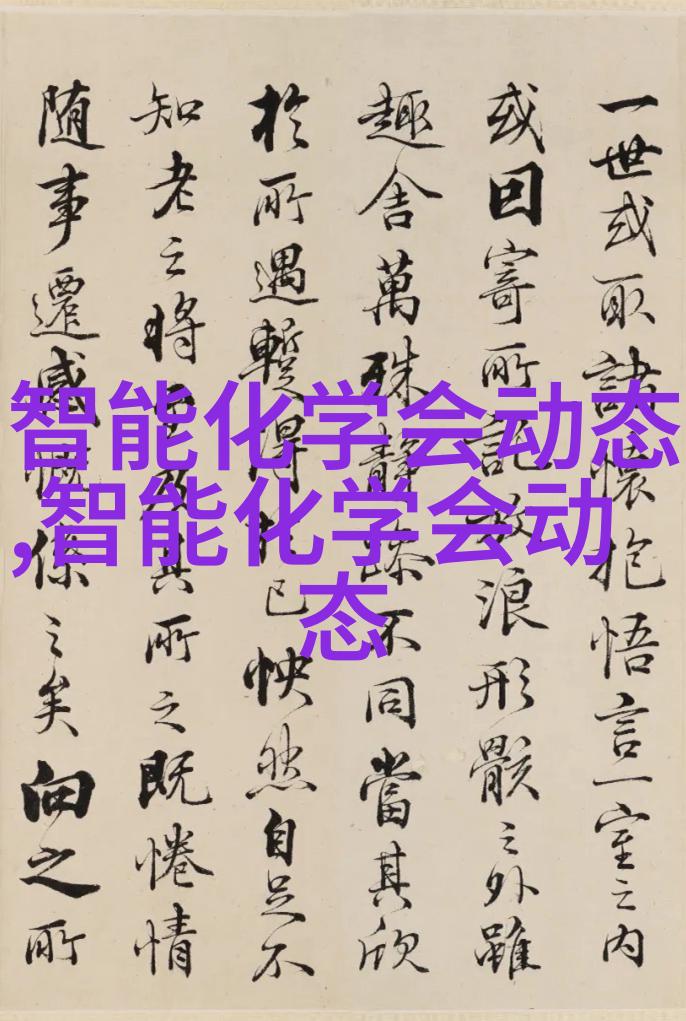 智能化学会动态
,智能化学会动
态
一世或取諸懷抱悟言一室之内
或因寄所託放浪形骸之外雖
趣舍萬殊静躁不同當其欣
於所遇蹔得於己怏然自足不
知老之將至及其所之既惓情
随事遷感慨係之矣向之所